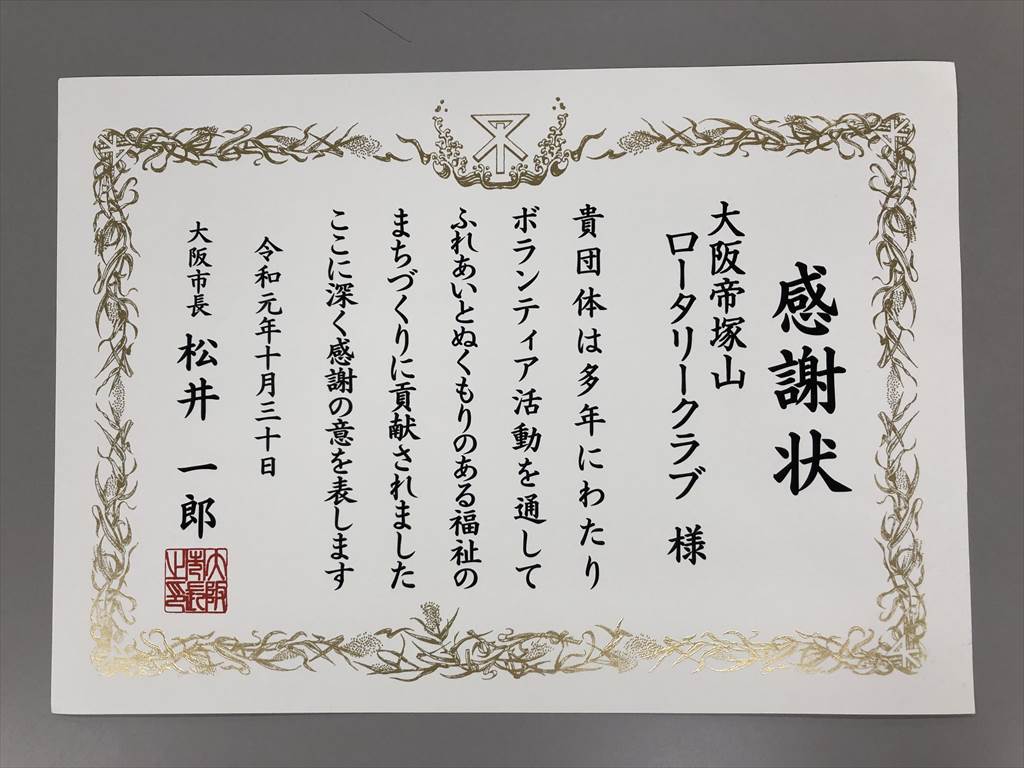 感謝状
大阪帝塚山
ロータリークラブ 様
貴団体は多年にわたり
ボランティア活動を通して
ふれあいとぬくもりのある福祉の
まちづくりに貢献されました
ここに深く感謝の意を表します
令和元年十月三十日
大阪市長 松井 一郎
大阪市長之印